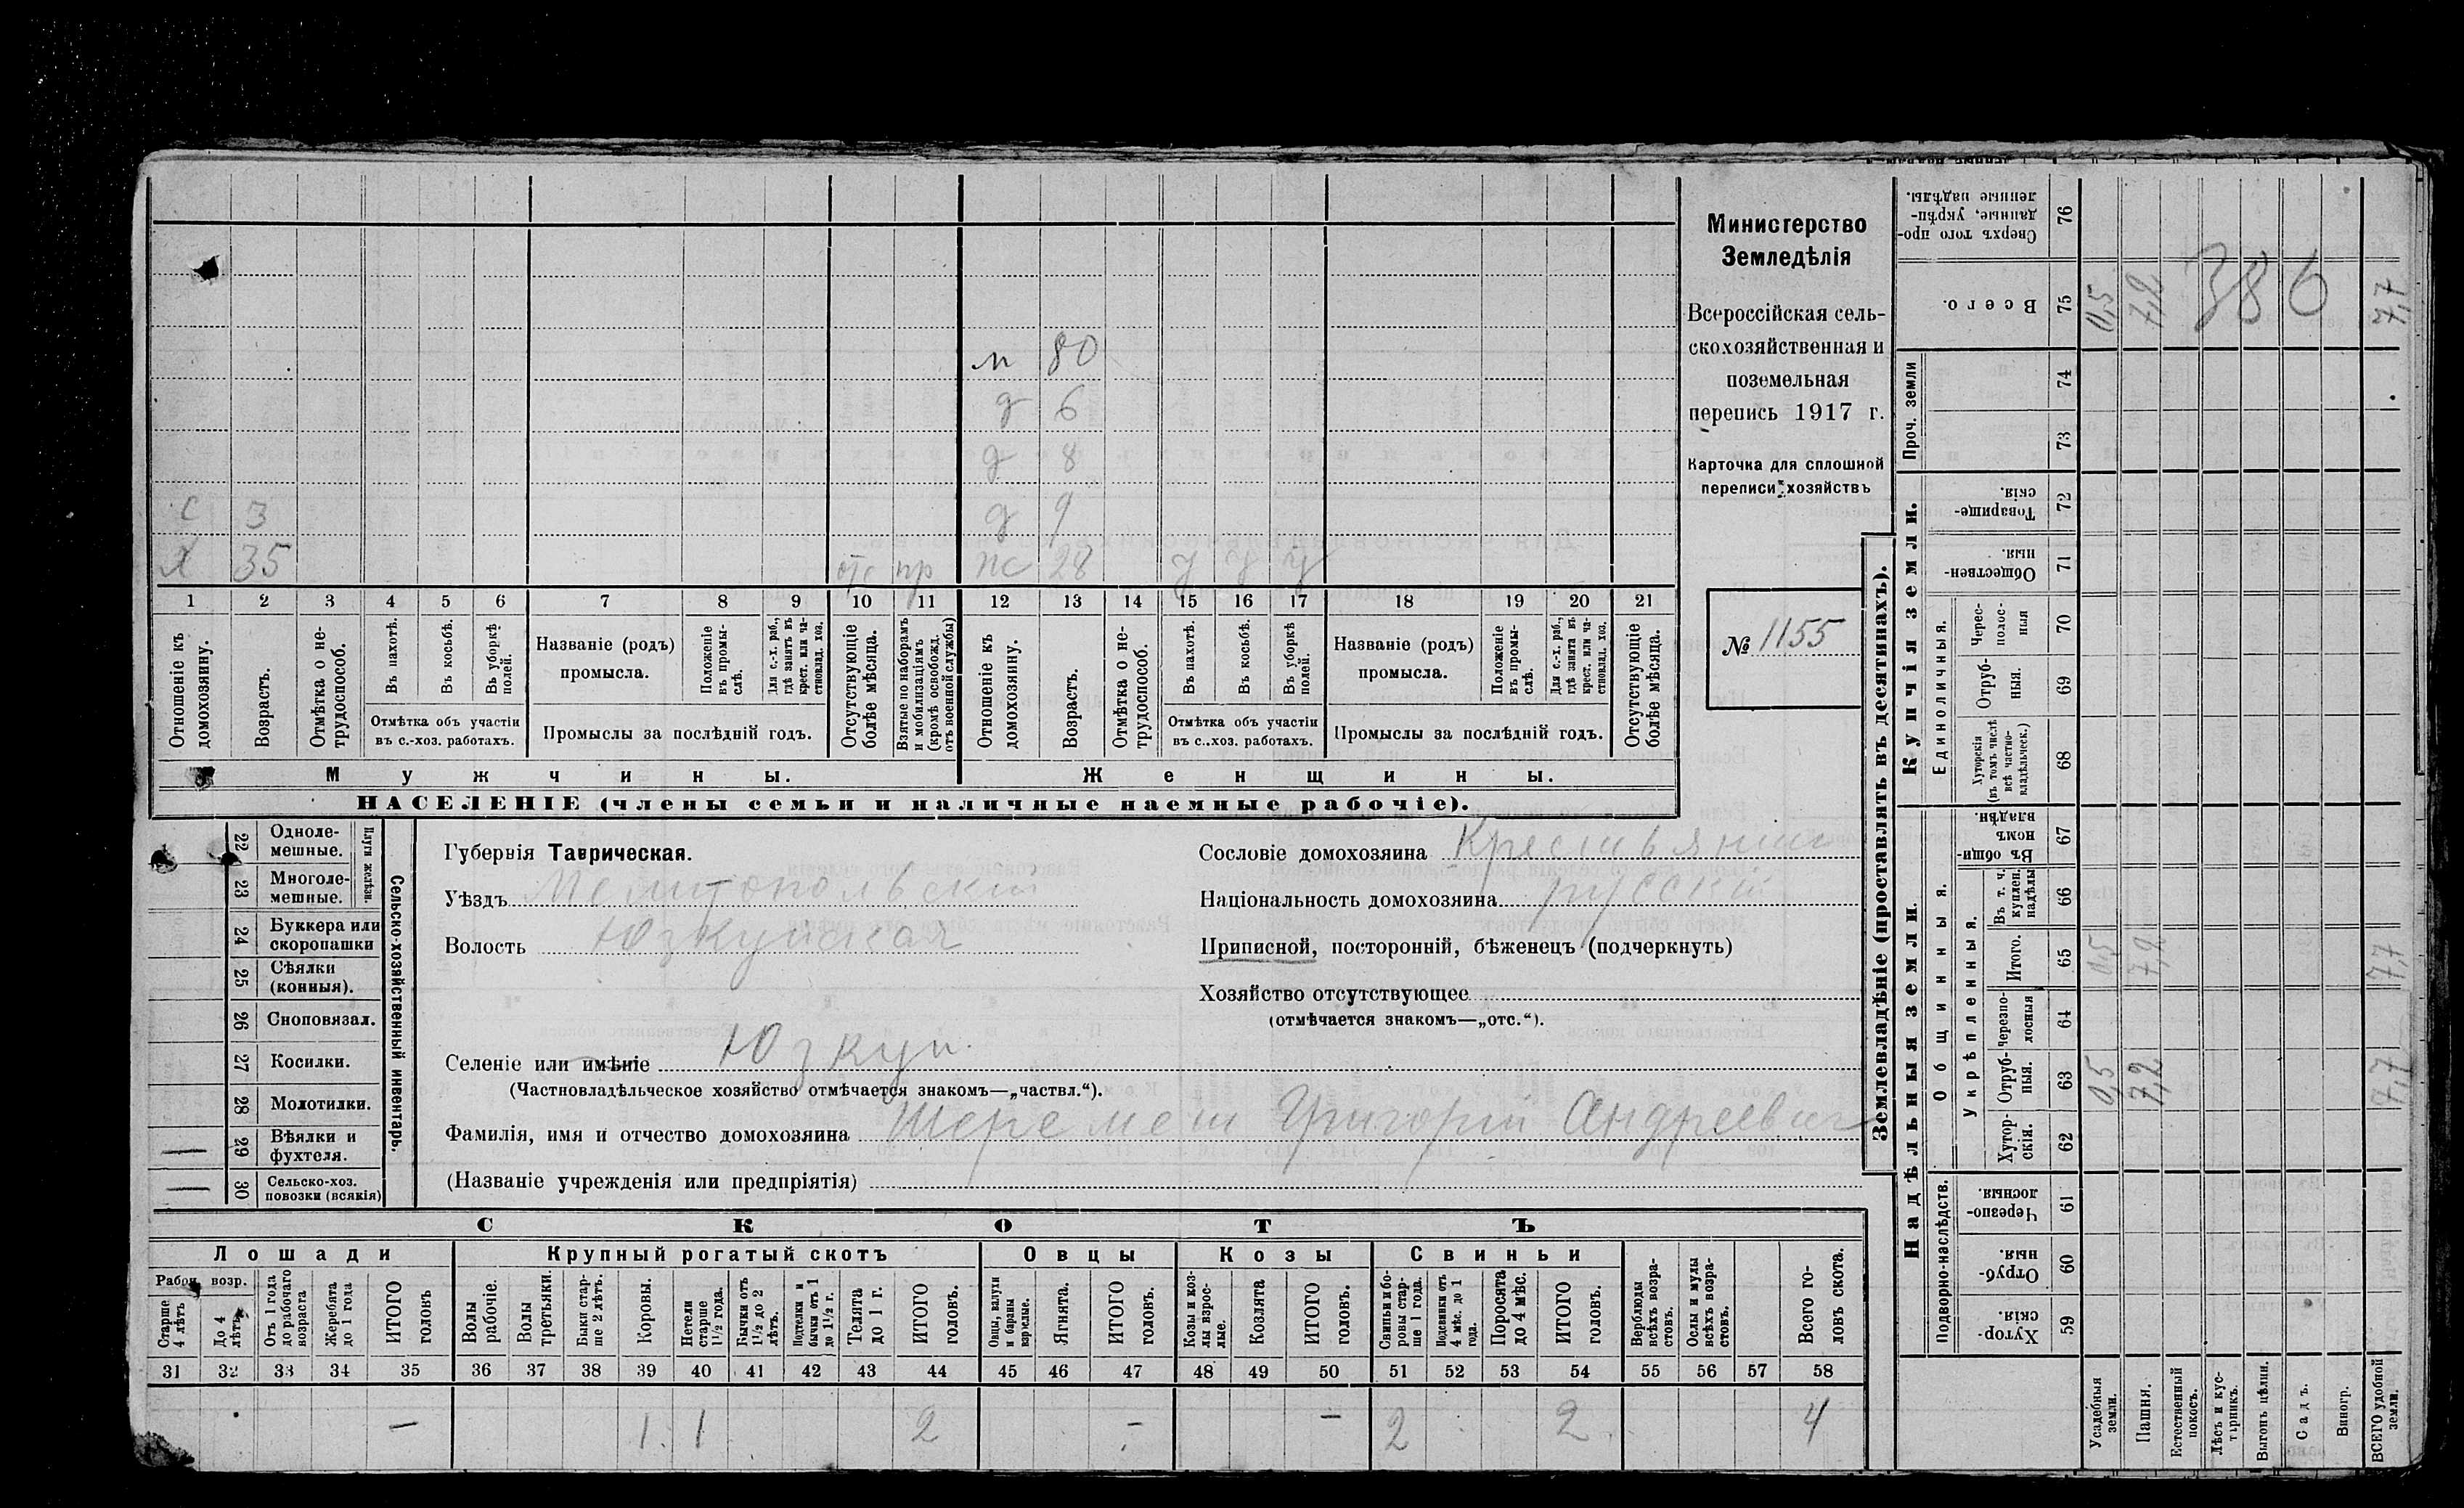 м 80
д 6
д 8
с 3 д 9
х 35 отс пр ж 28 у у у
1 2 3 4 5 6 7 8 9 10 11 12 13 14 15 16 17 18 19 20 21
Отношеніе къ домохозяину.
Возрастъ.
Отмѣтка о не-
трудоспособ.
Въ пахотѣ.
Въ косьбѣ.
Въ уборкѣ
полей.
Отмѣтка объ участіи
въ с.-хоз. работахъ.
Названіе (родъ)
промысла.
Положеніе
въ промы-
слѣ.
Для с.-х. раб.,
гдѣ занятъ въ
крест. или ча-
стновлад. хоз.
Промыслы за послѣдній годъ.
Отсутствующіе
болѣе мѣсяца.
Взятые по наборамъ
и мобилизаціямъ
(кромѣ освобожд.
отъ военной службы)
Отношеніе къ
домохозяину.
Возрастъ.
Отмѣтка о не-
трудоспособ.
Въ пахотѣ.
Въ косьбѣ.
Въ уборкѣ
полей.
Отмѣтка объ участіи
въ с.-хоз. работахъ.
Названіе (родъ)
промысла.
Положеніе
въ промы-
слѣ.
Для с.-х. раб.,
гдѣ занята въ
крест. или ча-
стновлад. хоз.
Промыслы за послѣдній годъ.
Отсутствующіе
болѣе мѣсяца.
Мужчины.
Женщины.
НАСЕЛЕНІЕ (члены семьи и наличные наемные рабочіе).
Министерство
Земледѣлія
Всероссійская сель-
скохозяйственная и
поземельная
перепись 1917 г.
Карточка для сплошной
переписи хозяйствъ
№ 1155
22 Одноле-
мешные.
23 Многоле-
мешные.
Плуги желѣзн.
24 Буккера или
скоропашки
25 Сѣялки
(конныя).
26 Сноповязал.
27 Косилки.
28 Молотилки.
— 29 Вѣялки и
фухтеля.
— 30 Сельско-хоз.
повозки (всякія)
Сельско-хозяйственный инвентарь.
Губернія Таврическая.
Уѣздъ Мелитопольскій
Волость Юзкуйская
Селеніе или имѣніе Юзкуи
(Частновладѣльческое хозяйство отмѣчается знакомъ—„частвл.“).
Фамилія, имя и отчество домохозяина Шеремет Григорій Андреевич
(Названіе учрежденія или предпріятія)
Сословіе домохозяина Крестьянин
Національность домохозяина русскій
Приписной, посторонній, бѣженецъ (подчеркнуть)
Хозяйство отсутствующее
(отмѣчается знакомъ—„отс.“).
СКОТЪ
Лошади
Крупный рогатый скотъ
Овцы
Козы
Свиньи
Рабоч. возр.
Старше
4 лѣтъ
До 4
лѣтъ
Отъ 1 года
до рабочаго
возраста
Жеребята
до 1 года
ИТОГО
головъ
Волы
рабочіе.
Волы
третьяки.
Быки стар-
ше 2 лѣтъ.
Коровы.
Нетели
старше
1½ года.
Бычки отъ
1½ до 2
лѣтъ.
Подтелки и
бычки отъ 1
до 1½ г.
Телята
до 1 г.
ИТОГО
головъ.
Овцы, валухи
и бараны
взрослые.
Ягнята.
ИТОГО
головъ.
Козы и коз-
лы взрос-
лые.
Козлята
ИТОГО
головъ.
Свиньи и бо-
ровы стар-
ше 1 года.
Подсвинки отъ
4 мѣс. до 1
года.
Поросята
до 4 мѣс.
ИТОГО
головъ.
Верблюды
всѣхъ возра-
стовъ.
Ослы и мулы
всѣхъ возра-
стовъ.
Всего го-
ловъ скота.
31 32 33 34 35 36 37 38 39 40 41 42 43 44 45 46 47 48 49 50 51 52 53 54 55 56 57 58
— 1 1 2 — — 2 2 4
Землевладѣніе (проставлять въ десятинахъ).
Надѣльныя земли.
Купчія земли.
Подворно-наслѣдств.
Общинныя.
Укрѣпленныя.
Единоличныя.
Проч. земли
Хутор-
скія.
59
Отруб-
ныя.
60
Черезпо-
лосныя.
61
Хутор-
скія.
62
Отруб-
ныя.
63
Черезпо-
лосныя
64
Итого.
65
Въ т. ч.
куплен.
надѣлы
66
Въ общин-
номъ
владѣн.
67
Хуторскія
(въ томъ числѣ
всѣ частно-
владѣльческ.)
68
Отруб-
ныя.
69
Черес-
полос-
ныя
70
Обществен-
ныя.
71
Товарище-
скія.
72
73
74
Всего.
75
Сверхъ того про-
данные, укрѣп-
ленные надѣлы.
76
Усадебныя
земли.
0,5 0,5 0,5
Пашня.
7,2 7,2 7,2
Естественный
покосъ.
Лѣсъ и кус-
тарникъ.
Выгонъ цѣлин.
Садъ.
Виногр.
ВСЕГО удобной
земли.
7,7 7,7 7,7
386